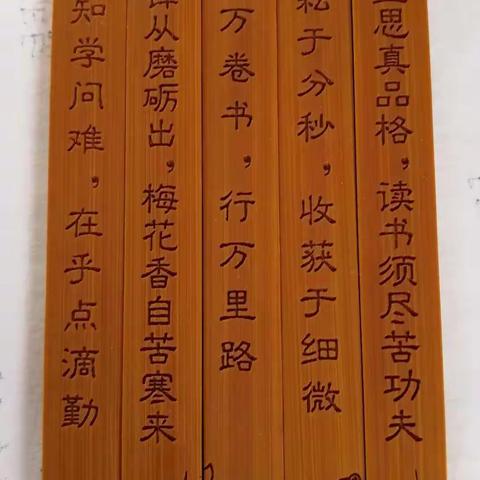 思真品格,读书须尽苦功夫
耘于分秒,收获于细微
万卷书,行万里路
锋从磨砺出,梅花香自苦寒来
知学问难,在乎点滴勤